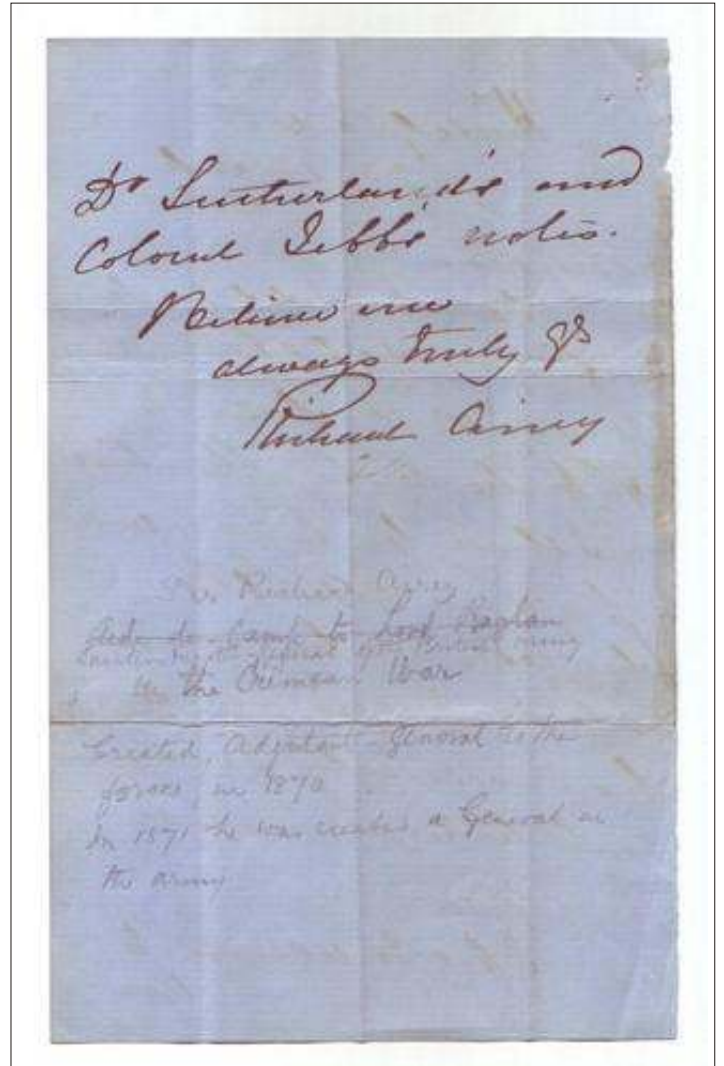 Dr Sutherland's and
Colonel Jebb's notes.
Believe me
always truly Yrs
Richard Airey
Richard Airey
Aide-de-Camp to Lord Raglan
General British army
in the Crimean War
Created, Adjutant-General to the
forces, in 1870
In 1871 he was created a General in
the army